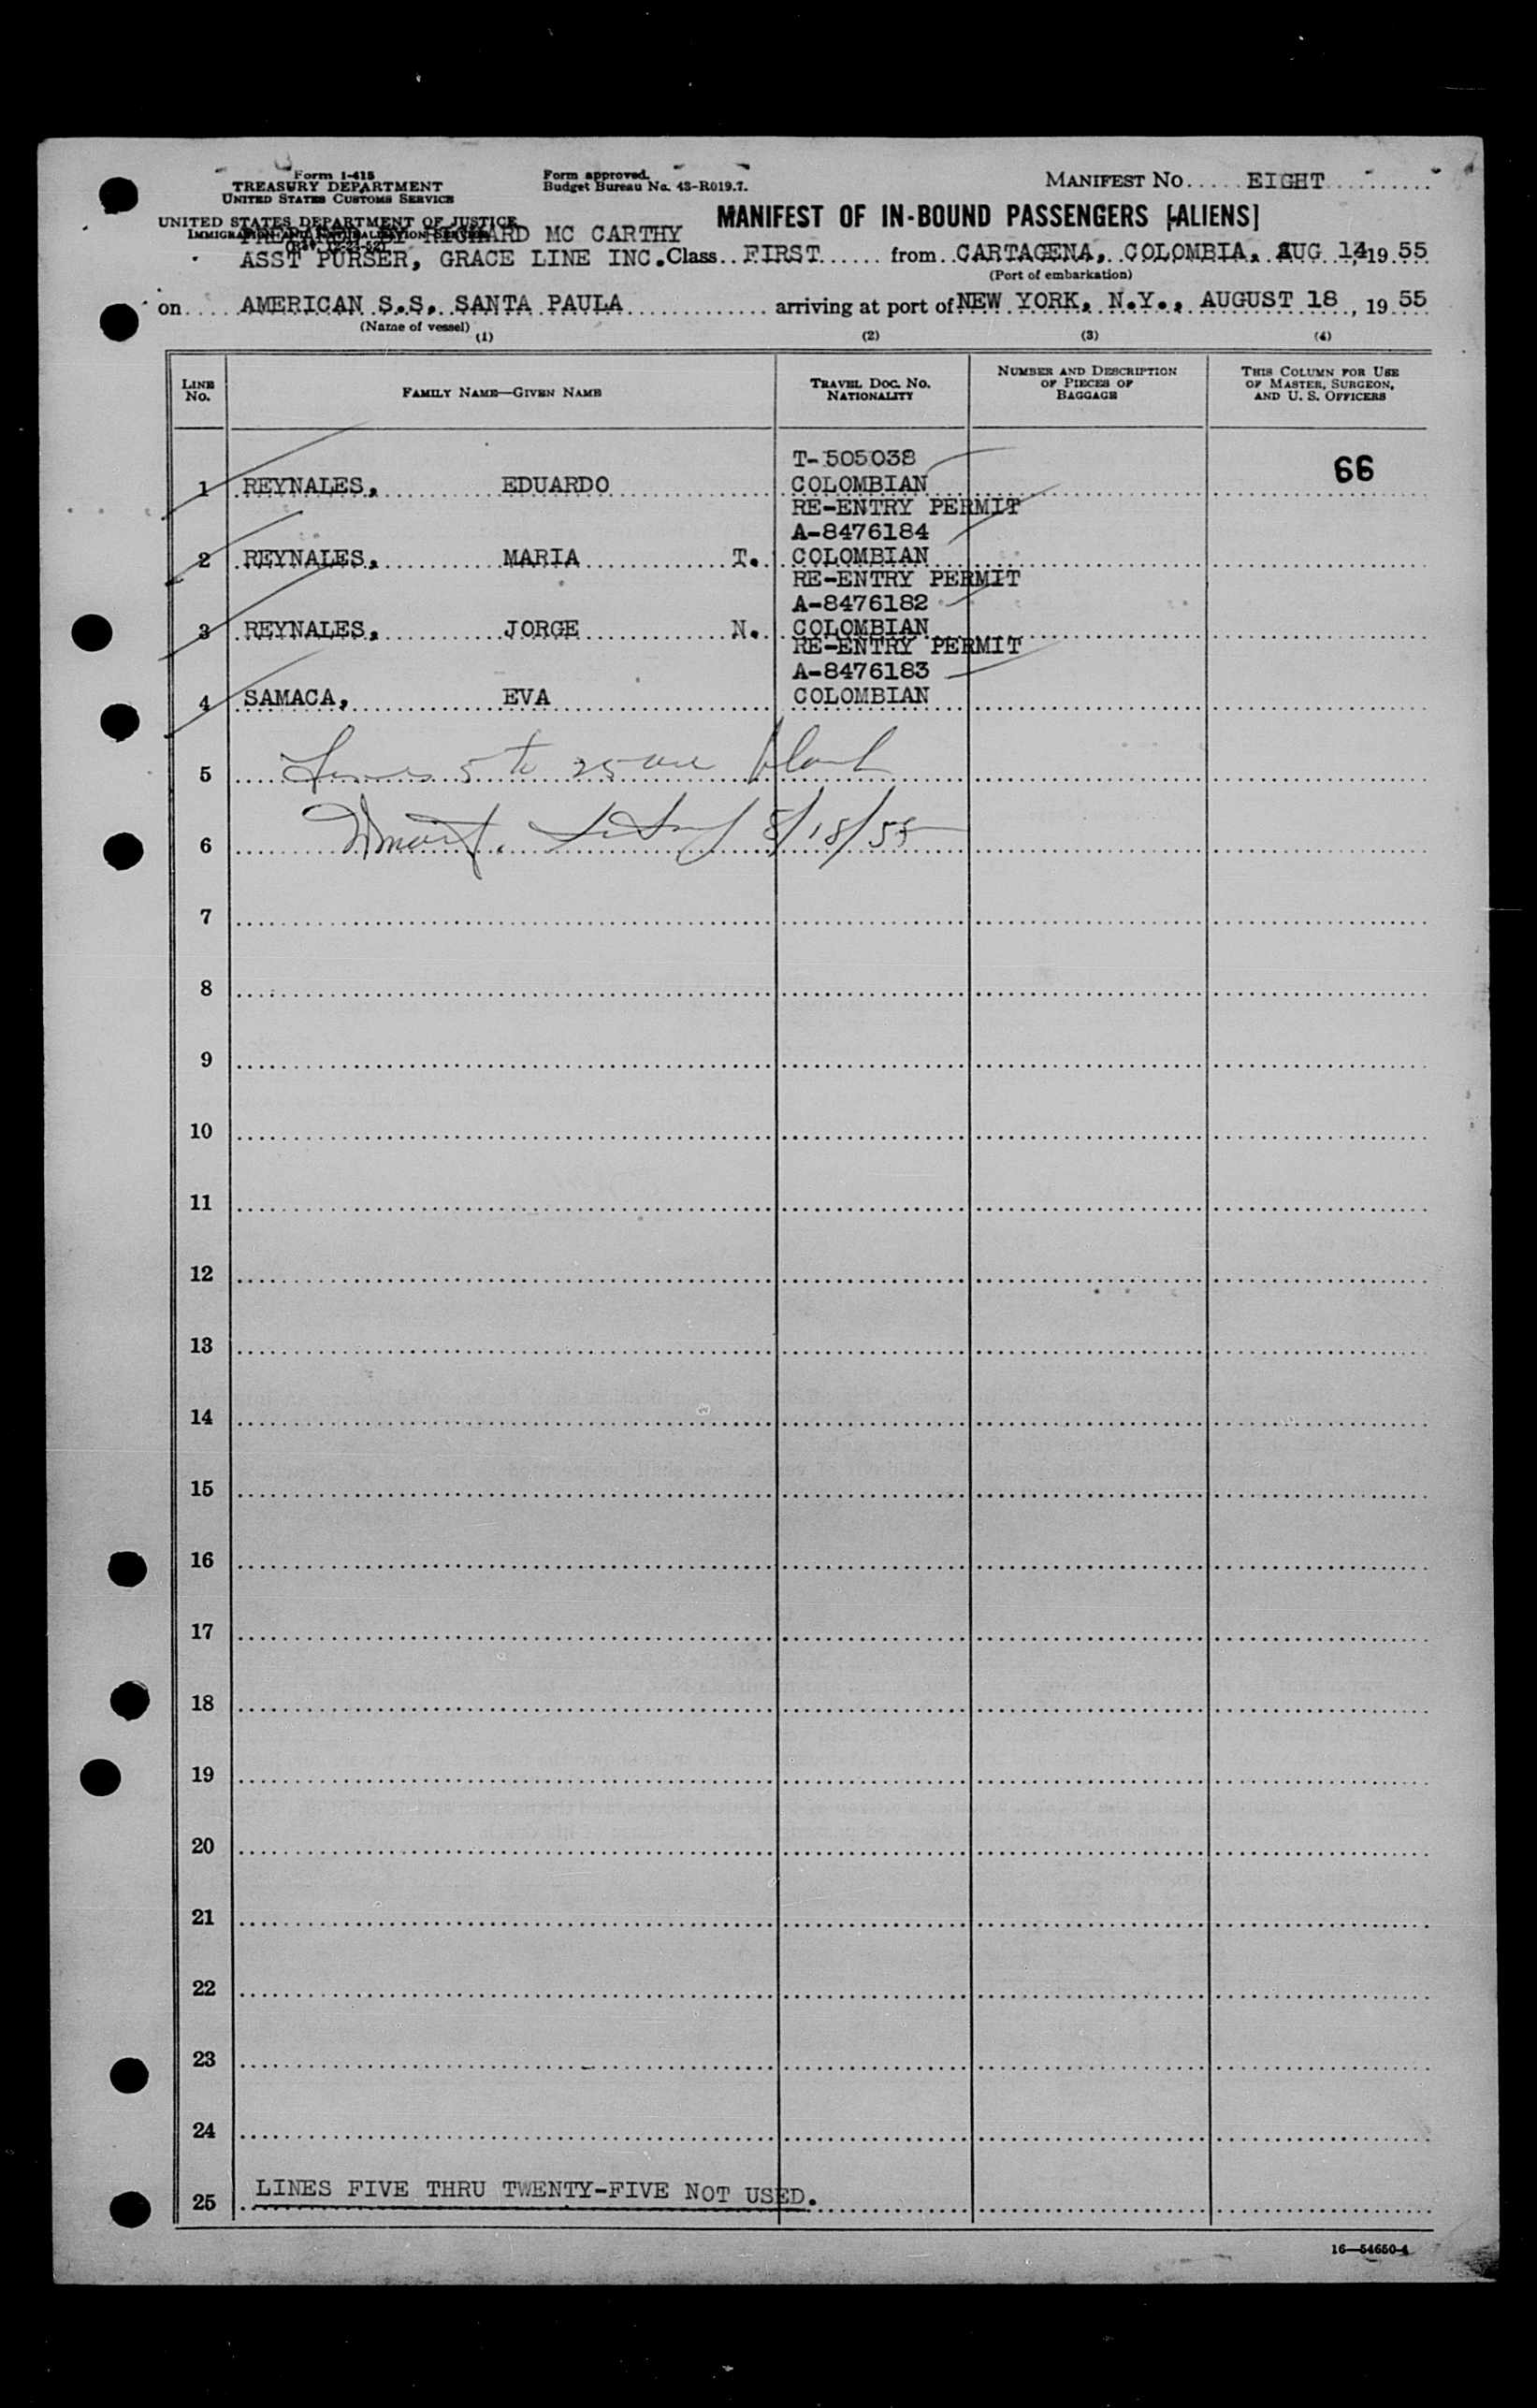 Form I-415
TREASURY DEPARTMENT
UNITED STATES CUSTOMS SERVICE
Form approved.
Budget Bureau No. 43-R019.7.
MANIFEST NO. EIGHT
UNITED STATES DEPARTMENT OF JUSTICE
IMMIGRATION AND NATURALIZATION SERVICE
MANIFEST OF IN-BOUND PASSENGERS [ALIENS]
PREPARED BY RICHARD MC CARTHY
ASST PURSER, GRACE LINE INC. Class FIRST from CARTAGENA, COLOMBIA, AUG 14, 19 55
(Port of embarkation)
on AMERICAN S.S. SANTA PAULA arriving at port of NEW YORK, N.Y., AUGUST 18, 19 55
(Name of vessel)
(1) (2) (3) (4)
LINE No. FAMILY NAME—GIVEN NAME TRAVEL DOC. NO. NATIONALITY NUMBER AND DESCRIPTION OF PIECES OF BAGGAGE THIS COLUMN FOR USE OF MASTER, SURGEON, AND U. S. OFFICERS
T-505038
66
1 REYNALES, EDUARDO COLOMBIAN
RE-ENTRY PERMIT
A-8476184
2 REYNALES, MARIA T. COLOMBIAN
RE-ENTRY PERMIT
A-8476182
3 REYNALES, JORGE N. COLOMBIAN
RE-ENTRY PERMIT
A-8476183
4 SAMACA, EVA COLOMBIAN
5 Lines 5 to 25 are blank
6 8/18/55
7
8
9
10
11
12
13
14
15
16
17
18
19
20
21
22
23
24
25 LINES FIVE THRU TWENTY-FIVE NOT USED.
16—54650-4